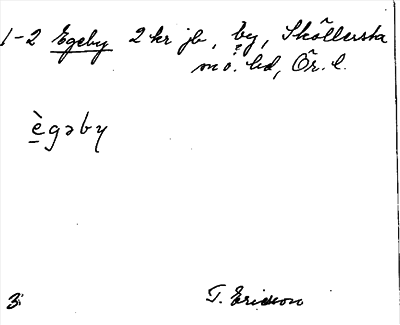 1-2 Egeby 2 kr jb, by, Sköllersta
m o. hd, Ör. l.
ègəby
3. T. Ericsson